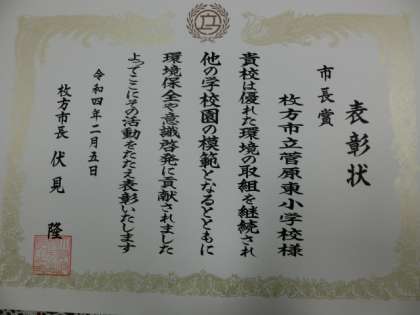 表彰状
市長賞
枚方市立菅原東小学校様
貴校は優れた環境の取組を継続され
他の学校園の模範となるとともに
環境保全や意識啓発に貢献されました
よってここにその活動をたたえ表彰いたします
令和四年二月五日
枚方市長 伏見 隆